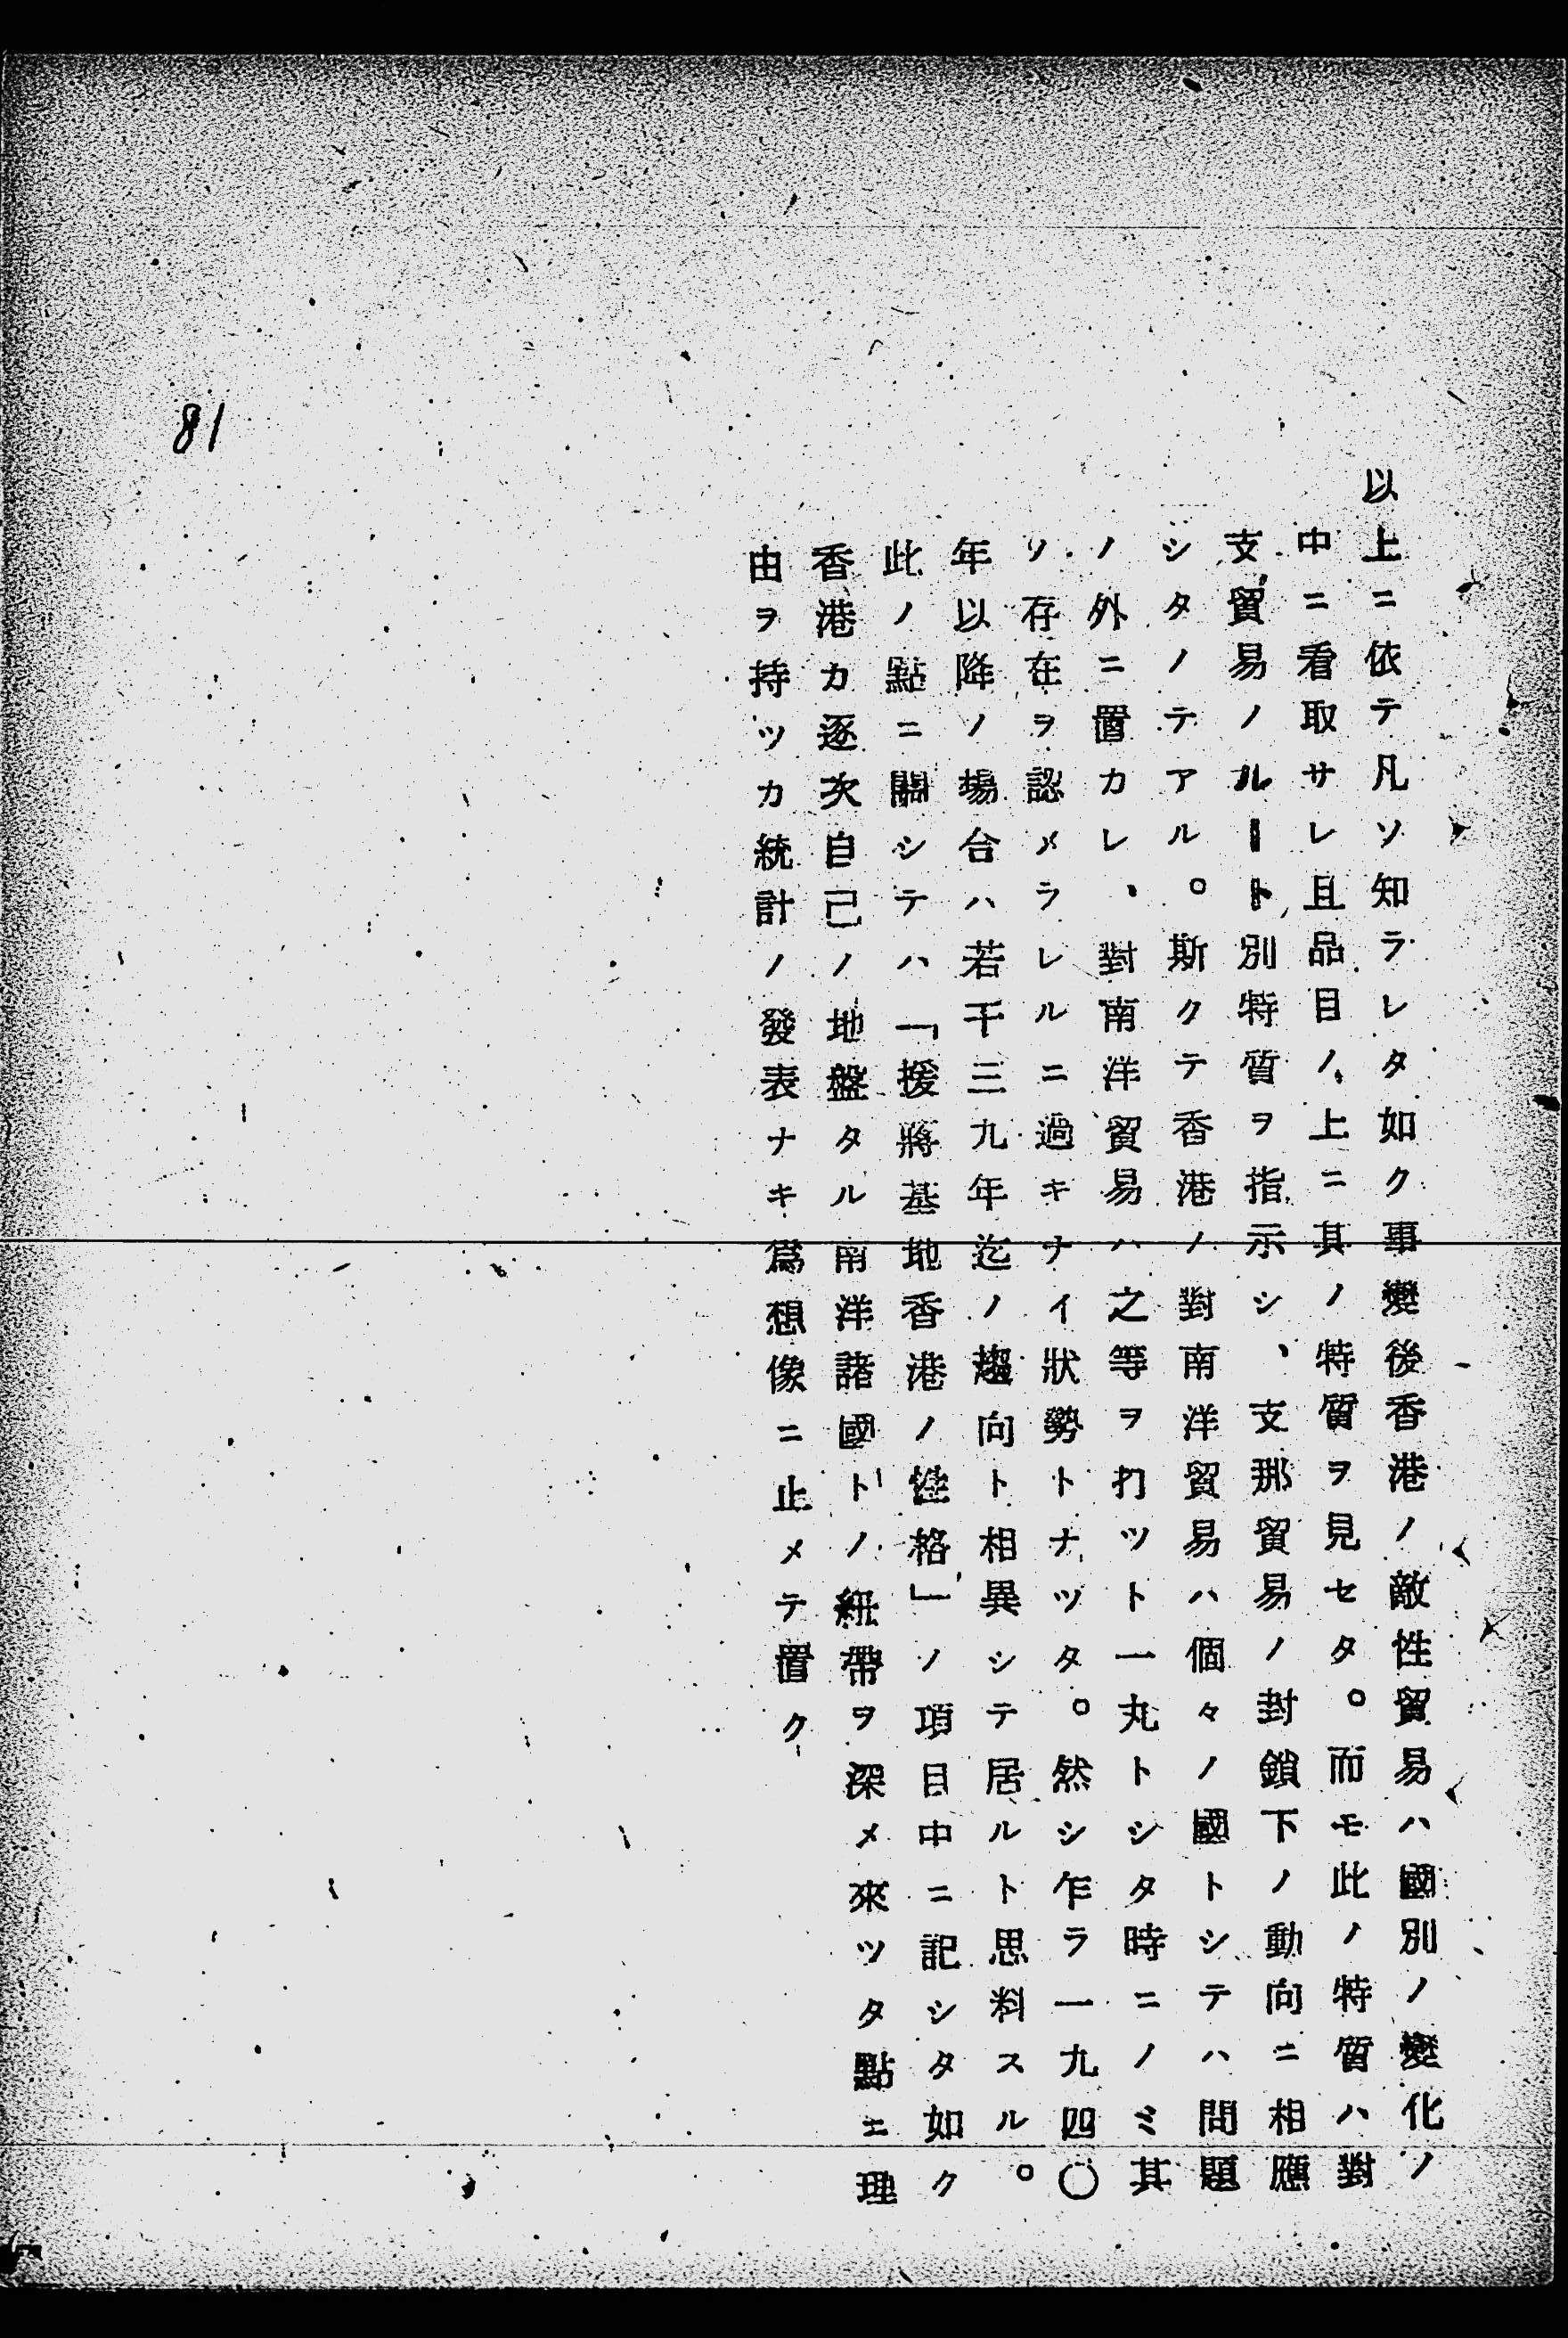 以上ニ依テ凡ソ知ラレタ如ク事變後香港ノ敵性貿易ハ國別ノ變化ノ
中ニ看取サレ且品目ノ上ニ其ノ特質ヲ見セタ。而モ此ノ特質ハ對
支貿易ノルート別特質ヲ指示シ、支那貿易ノ封鎖下ノ動向ニ相應
シタノテアル。斯クテ香港ノ對南洋貿易ハ個々ノ國トシテハ問題
ノ外ニ置カレ、對南洋貿易ハ之等ヲ打ツト一丸トシタ時ニノミ其
ソ存在ヲ認メラレルニ過キナイ狀勢トナツタ。然シ乍ラ一九四〇
年以降ノ場合ハ若干三九年迄ノ趨向ト相異シテ居ルト思料スル。
此ノ點ニ關シテハ「援蔣基地香港ノ性格」ノ項目中ニ記シタ如ク
香港カ逐次自己ノ地盤タル南洋諸國トノ紐帶ヲ深メ來ツタ點ニ理
由ヲ持ツカ統計ノ發表ナキ爲想像ニ止メテ置ク
81